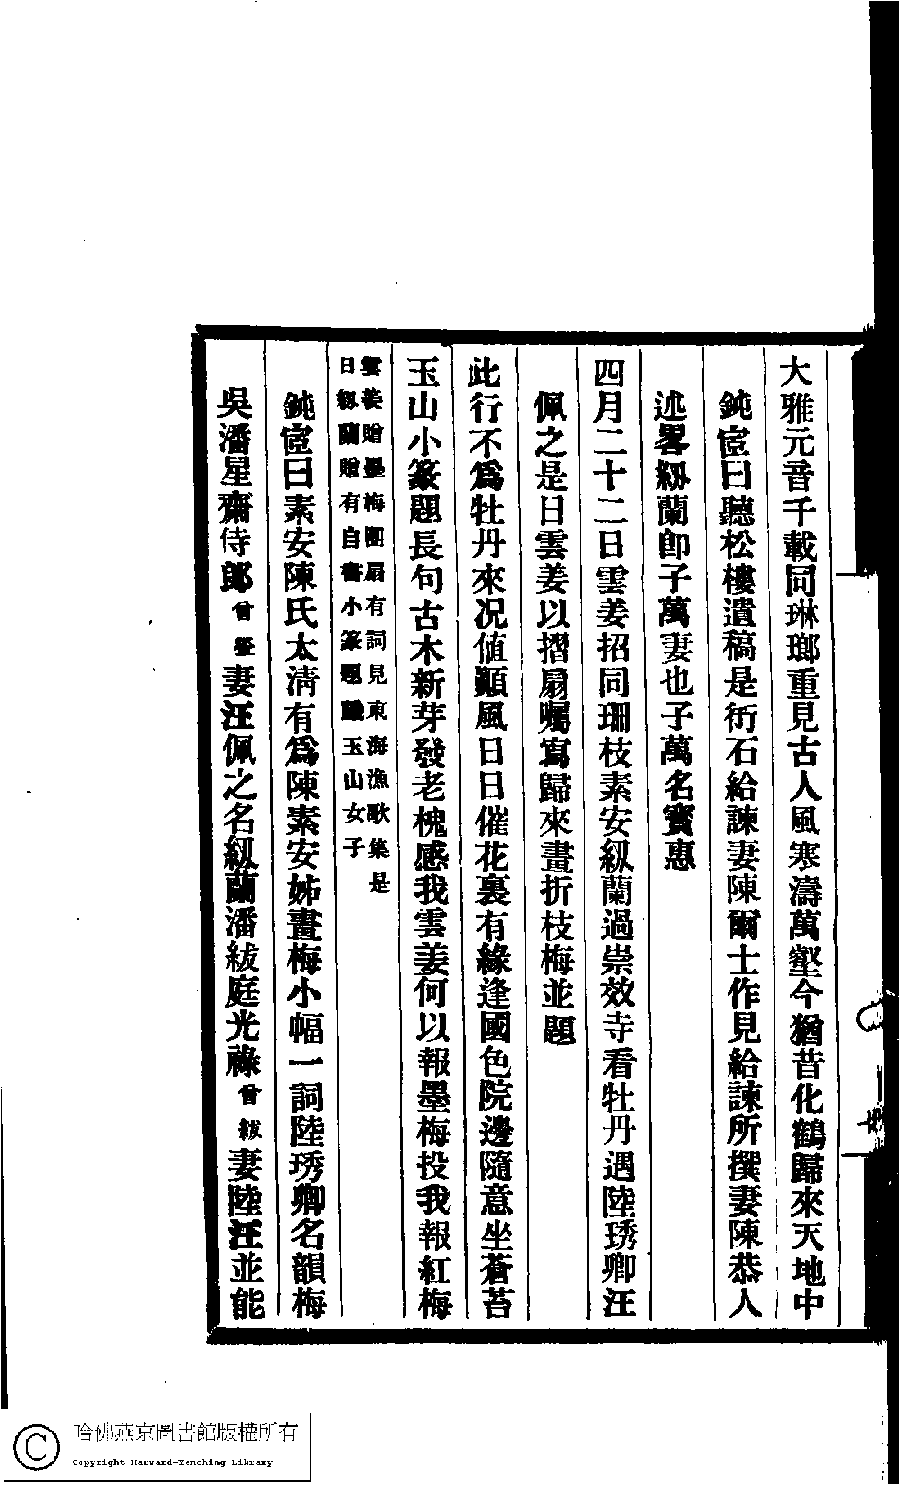 大雅元音千載同琳瑯重見古人風寒濤萬壑今猶昔化鶴歸來天地中
鈍宧曰聽松樓遺稿是衎石給諫妻陳爾士作見給諫所撰妻陳恭人
述畧紉蘭卽子萬妻也子萬名寳惠
四月二十二日雲姜招同珊枝素安紉蘭過崇效寺看牡丹遇陸琇卿汪
佩之是日雲姜以摺扇囑寫歸來畫折枝梅並題
此行不爲牡丹來况值顚風日日催花裏有緣逢國色院邊隨意坐蒼苔
玉山小篆題長句古木新芽發老槐感我雲姜何以報墨梅投我報紅梅
雲姜贈墨梅團扇有詞見東海漁歌集是
日紉蘭贈有自書小篆題識玉山女子
鈍宧曰素安陳氏太淸有爲陳素安姊畫梅小幅一詞陸琇卿名韻梅
吳潘星齋侍郞曾瑩妻汪佩之名紉蘭潘紱庭光祿曾綬妻陸汪並能
哈佛燕京圖書館版權所有
Copyright Harvard-Yenching Library